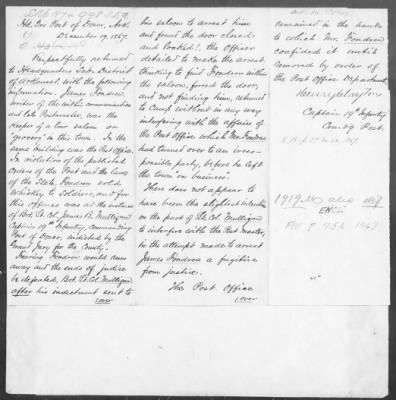 Hd. Qrs Post of Dover, Ark.
December 19, 1867.
Respectfully returned
to Headquarters Sub. District
of Arkansas, with the following
information. James Fondren,
writer of the within communication
and late Postmaster, was the
keeper of a low saloon or
"grocery" in this town. In the
same building was the Post Office.
In violation of the published
orders of the Post and the laws
of the State, Fondren sold
whiskey to Soldiers, and for
this offence was at the instance
of Bvt. Lt. Col. James B. Mulligan
Captain 19th Infantry, commanding
Post of Dover, indicted by the
Grand Jury for the County.
Fearing Fondren would run
away and the ends of justice
be defeated, Bvt. Lt. Col. Mulligan
after his indictment sent to
over
his saloon to arrest him
and found the door closed
and locked. The Officer
detailed to make the arrest
thinking to find Fondren within
the saloon, forced the door,
and not finding him, returned
to Camp without in any way
interfering with the affairs of
the Post Office which Mr. Fondren
had turned over to an irres-
ponsible party, before he left
the town "on business".
There does not appear to
have been the slightest intention
on the part of Lt. Col. Mulligan
to interfere with the Post master,
in the attempt made to arrest
James Fondren a fugitive
from justice.
The Post Office
over
remained in the hands
to which Mr. Fondren
confided it until
removed by order of
the Post Office Department.
Captain 19th Infantry
Comdg Post.